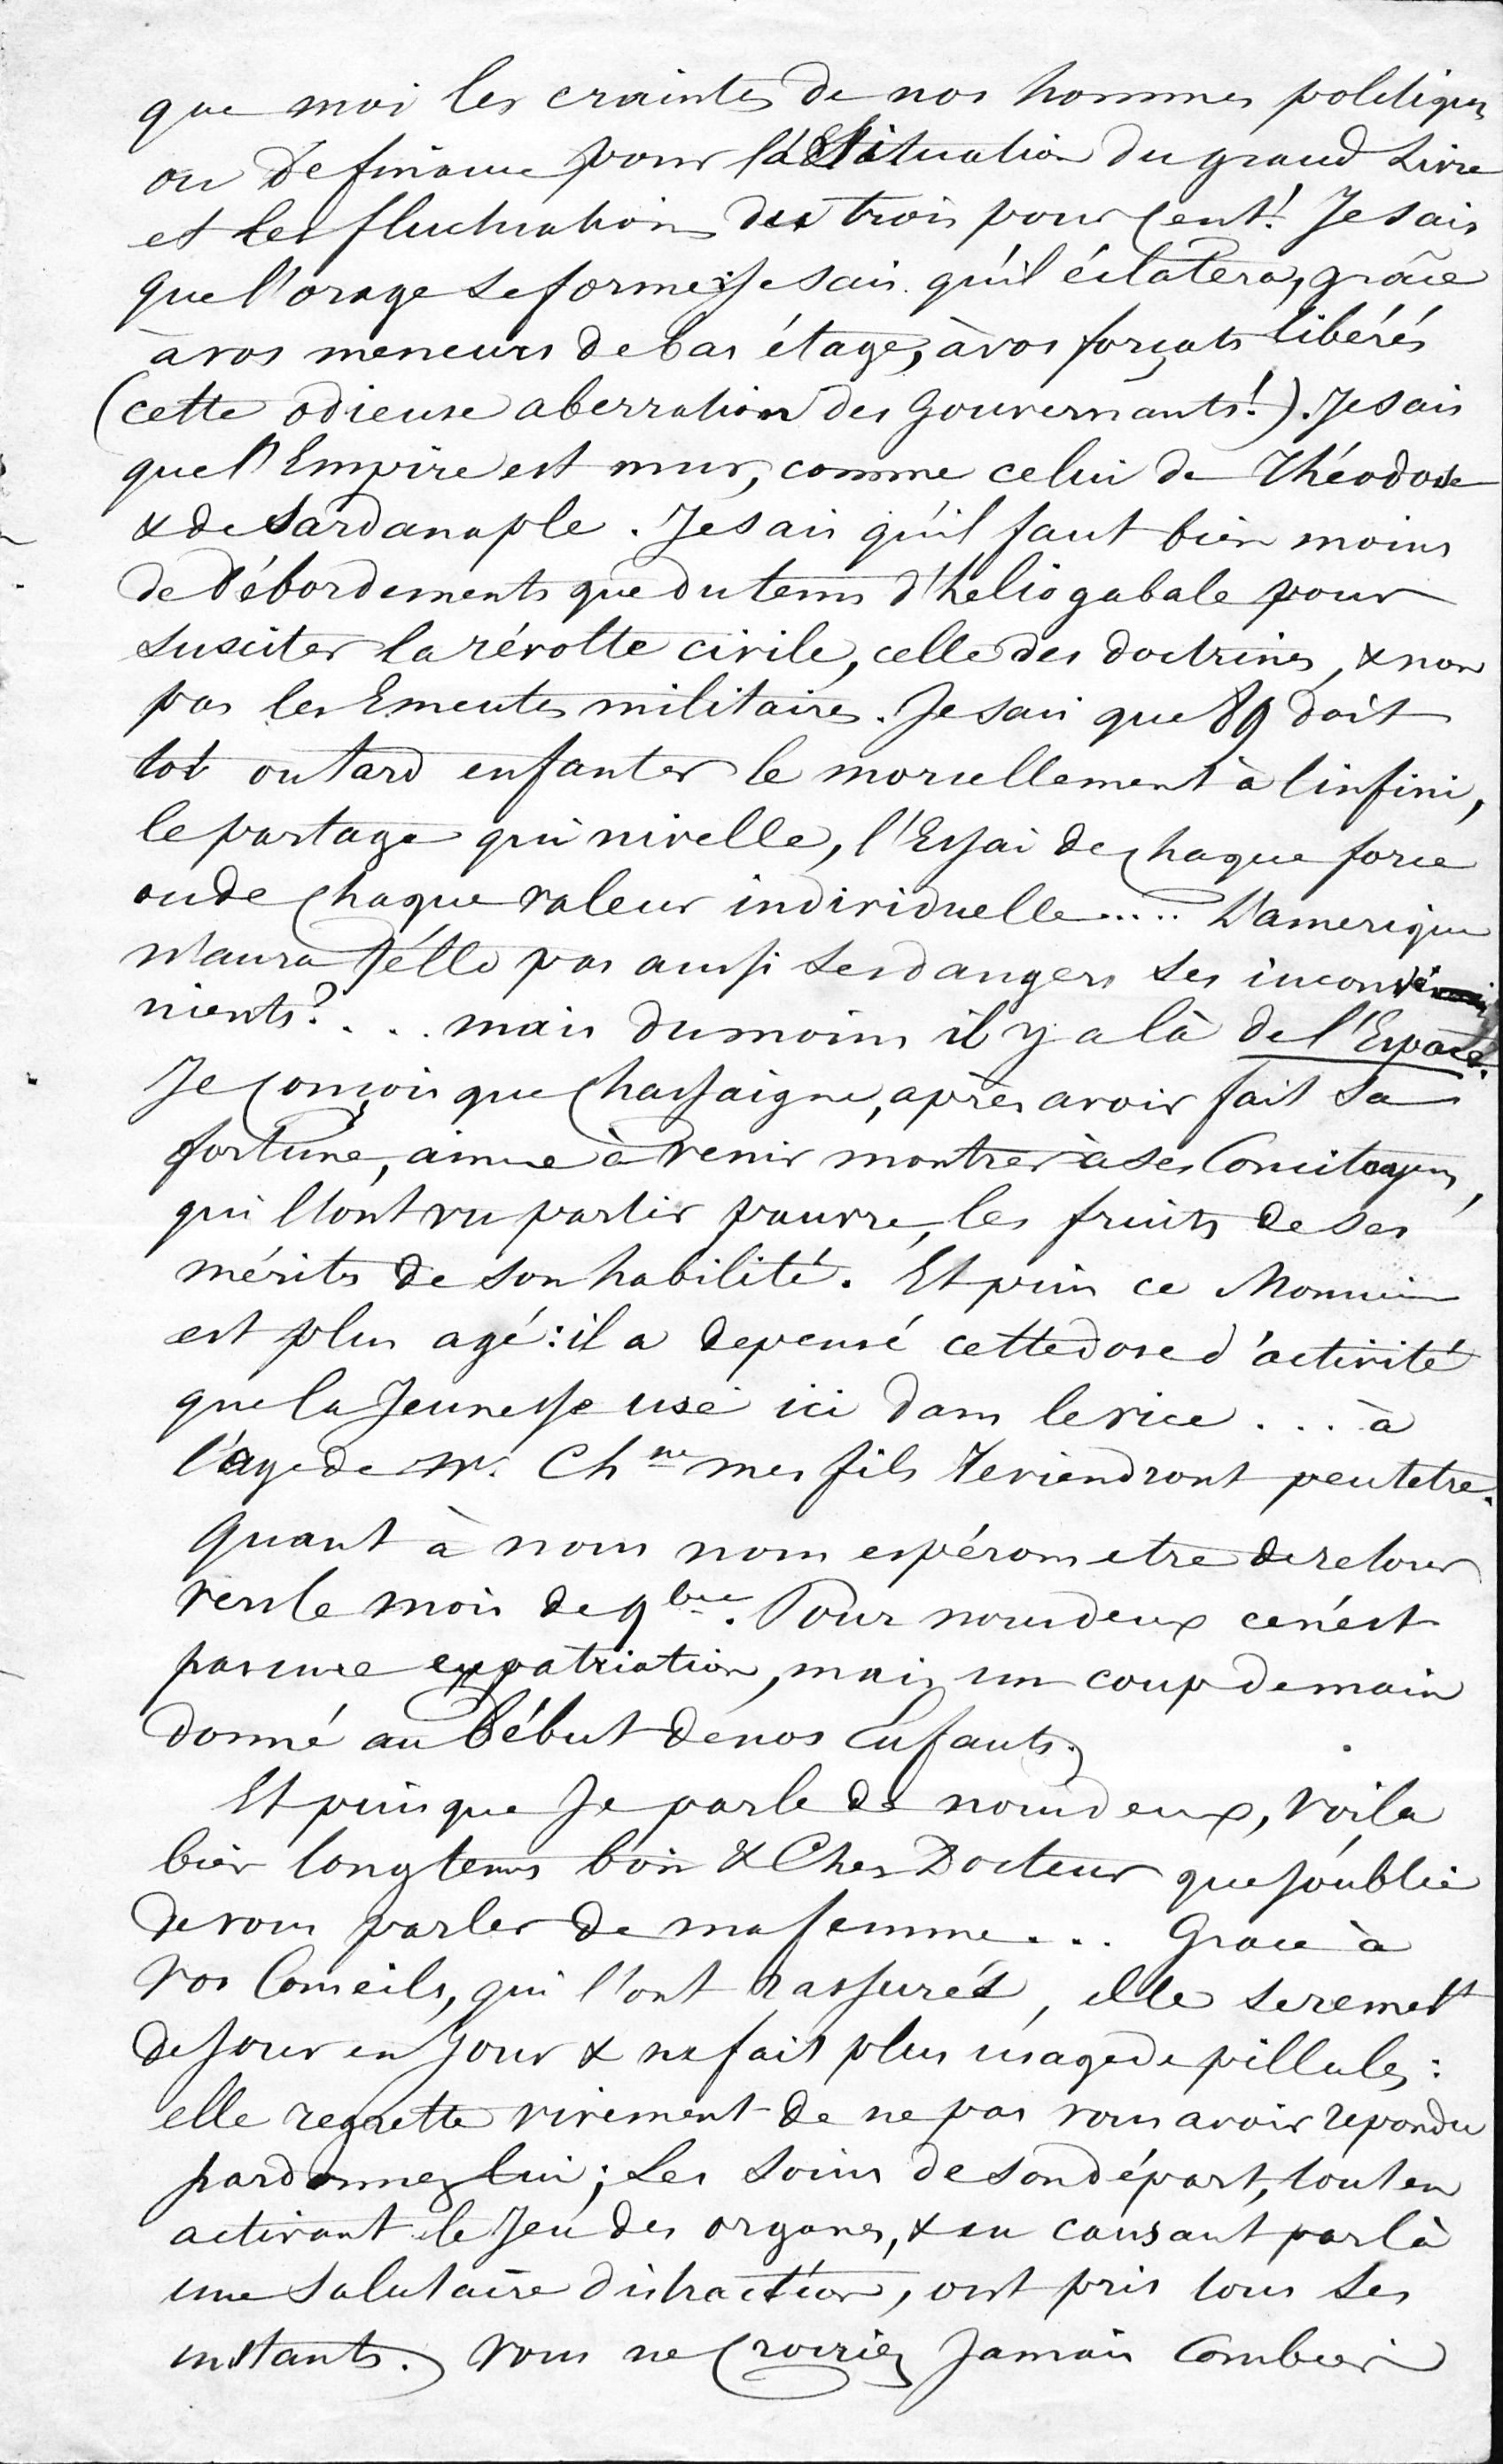 que moi les craintes de nos hommes politiques
ou de finance pour la Situation du grand Livre
et les fluctuations des trois pour cent! Je sais
que l'orage se forme: Je sais qu'il éclatera, grâce
à vos meneurs de bas étage, à vos forçats libérés
(cette odieuse aberration des Gouvernants!). Je sais
que l'Empire est mur, comme celui de Théodose
& de Sardanaple. Je sais qu'il faut bien moins
de débordements que du tems d'héliogabale pour
susciter la révolte civile, celle des doctrines, & non
pas les Emeutes militaires. Je sais que 89 doit
tot ou tard enfanter le morcellement à l'infini,
le partage qui nivelle, l'Essai de chaque force
ou de chaque valeur individuelle..... L'amerique
n'aura t'elle pas aussi ses dangers ses inconvé
nients?.... mais du moins il y a là de l'Espace.
Je conçois que Chassaigne, après avoir fait sa
fortune, aime à venir montrer à ses Concitoyens,
qui l'ont vu partir pauvre, les fruits de ses
mérites de son habilité. Et puis ce Monsieur
est plus agé: il a depensé cette dose d'activité
que la Jeunesse use ici dans le vice... à
l'age de Mr. Chne mes fils reviendront peutetre.
Quant à nous nous espérons etre de retour
vers le mois de 9bre. Pour nous deux ce n'est
pas une expatriation, mais un coup de main
donné au Début de nos Enfants.
Et puisque Je parle de nous deux, voila
bien longtems bon & Cher Docteur que J'oublie
de vous parler de ma femme... Grace à
vos Conseils, qui l'ont rassurée, elle se remett
de Jour en Jour & ne fait plus usage de pillules:
elle regrette vivement de ne pas vous avoir repondu
pardonnez lui; Les soins de son départ, tout en
activant le Jeu des organes, & en causant par là
une salutaire distraction, ont pris tous ses
instants. Vous ne Croiriez Jamais Combien